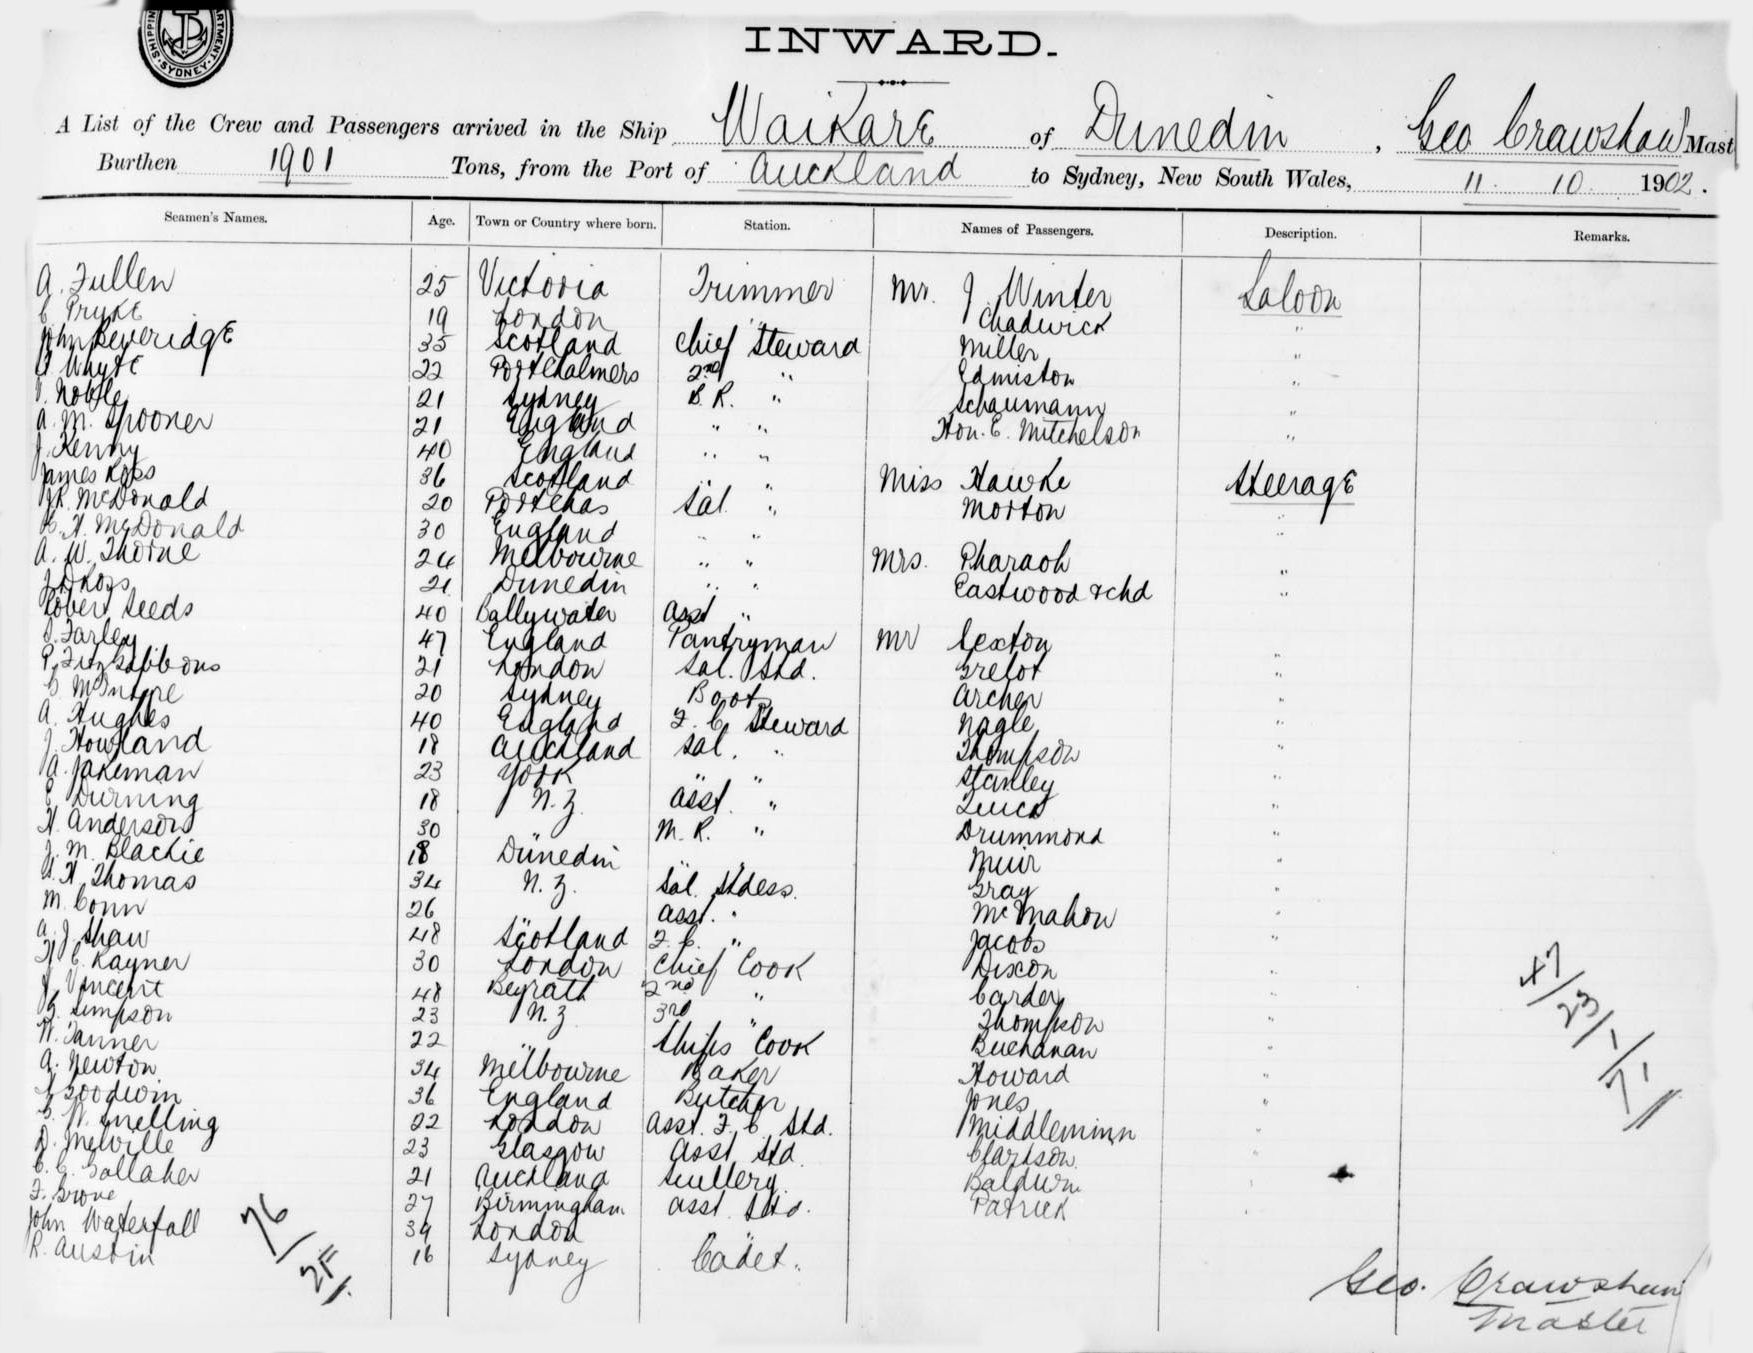 SHIPPING DEPARTMENT SYDNEY
INWARD.
A List of the Crew and Passengers arrived in the Ship WaiKarE of Dunedin, Geo Crawshaw Mast
Burthen 1901 Tons, from the Port of Auckland to Sydney, New South Wales, 11 10 1902.
Seamen's Names. Age. Town or Country where born. Station. Names of Passengers. Description. Remarks.
A. Fullen 25 Victoria Trimmer Mr. J Winter Saloon
C PrykE 19 London " Chadwick "
John BeveridgE 35 Scotland Chief Steward Miller "
WhytE 22 Port Chalmers 2nd " Edmiston "
Noble 21 Sydney B. R. " Schaumann "
A. M. Spooner 21 England " " Hon. E. Mitchelson "
J. Kenny 40 England " "
James Ross 36 Scotland " " Miss Hawke SteeragE
McDonald 20 Port Chas Sal " Morton "
H. McDonald 30 England " " "
A. W. Thorne 24 Melbourne " " Mrs. Pharaoh "
J D Ross 21 Dunedin " " Eastwood & chd "
Robert Seeds 40 Ballywater Asst "
Farley 47 England Pantryman Mr Sexton
P. Fitzgibbons 21 London Sal. Std. "
C McIntyre 20 Sydney Boots Archer "
A. Hughes 40 England F. C. Steward Nagle "
J. Howland 18 Auckland Sal. " Thompson "
A. Jakeman 23 York " " Stanley "
E Durning 18 N. Z. Asst. " "
H. Anderson 30 " M. R. " Drummond "
J. M. Blackie 18 Dunedin Muir "
H. Thomas 34 N. Z. Sal. Stdess. Gray "
M. Conn 26 Asst. " McMahon "
A. J. Shaw 48 Scotland F. C. " Jacobs "
H C. Rayner 30 London Chief Cook Dixon "
J Vincent 48 2nd " Carder "
G. Simpson 23 N. Z 3rd " Thompson "
W. Tanner 22 " Ships Cook Buchanan "
A. Newton 34 Melbourne Baker Howard "
Goodwin 36 England Butcher Jones "
W. Snelling 22 London Asst. F. C. Std. Middleminn "
D. Melville 23 Glasgow Asst Std. Clarkson "
C. C. Gallaher 21 Auckland Scullery Baldwin "
F. 27 Birmingham Asst Std. Patrick "
John Waterfall 39 London "
R. Austin 16 Sydney Cadet.
76/2F/
47/23/1/71/
Geo. Crawshaw
Master